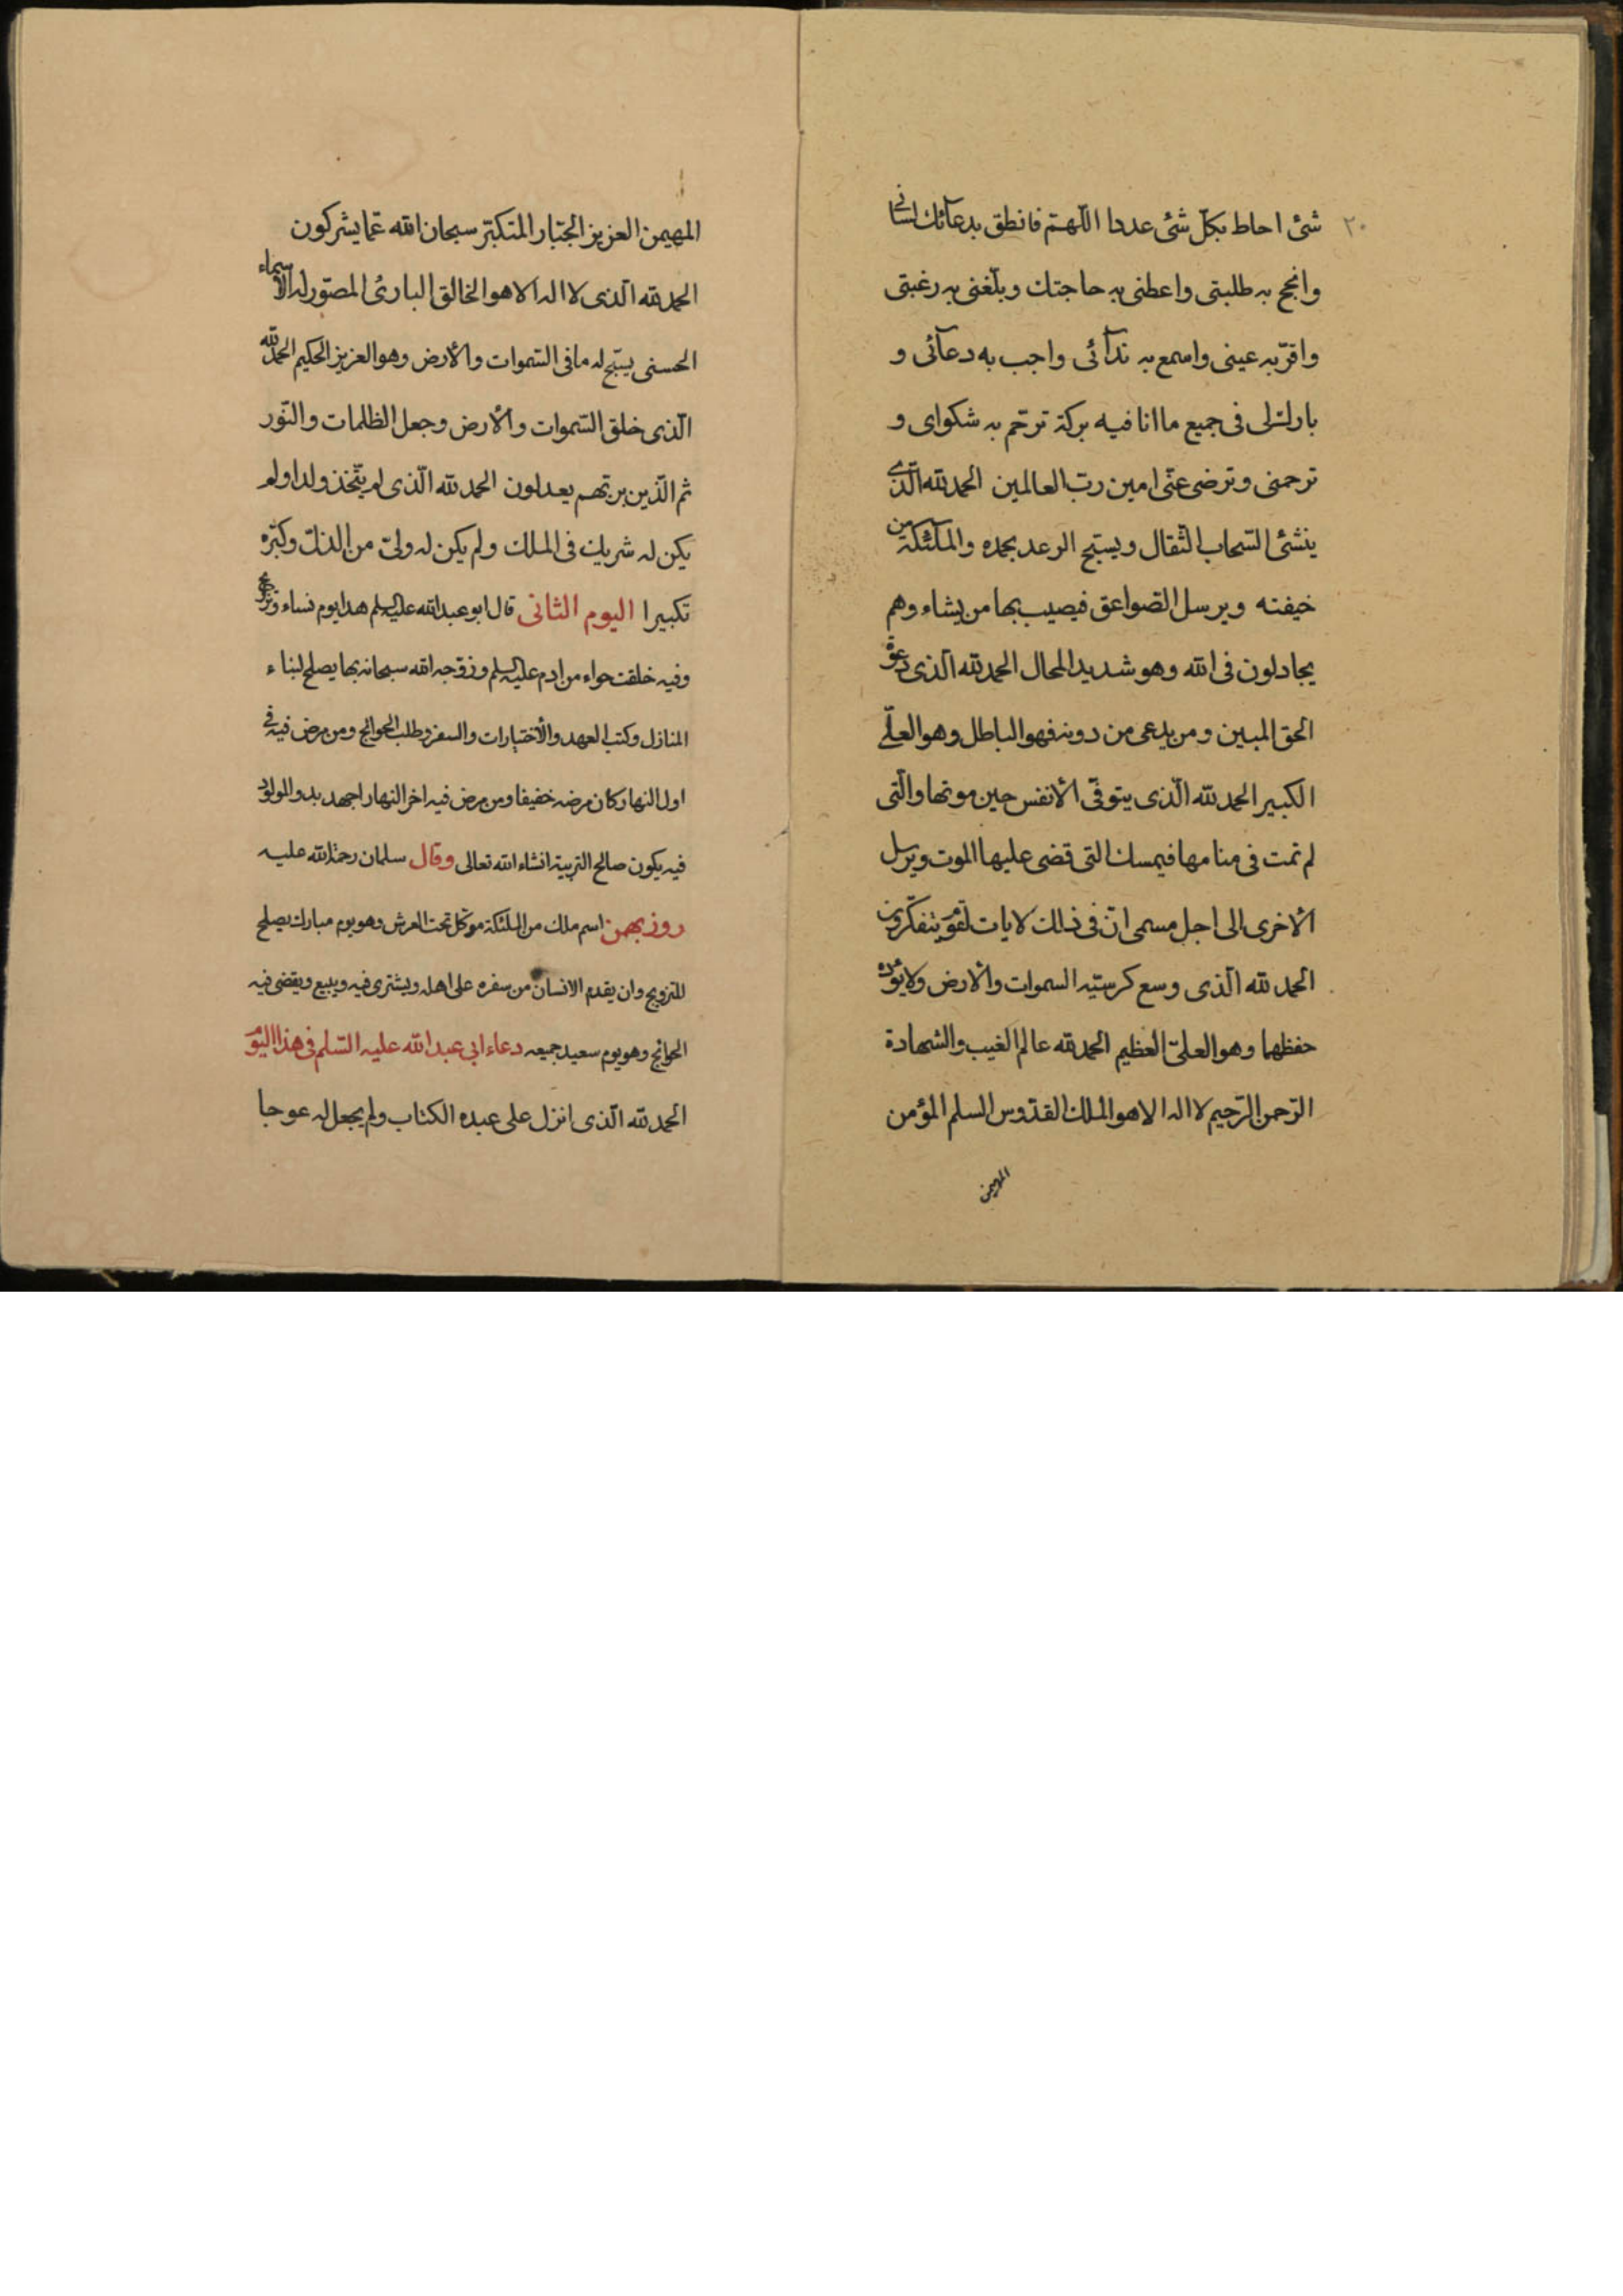 ٢٠
شئ احاط بكلّ شئ عددا اللّهمّ فانطق بدعآئك لسانى
وانجح به طلبتى واعطنى به حاجتك وبلّغنى به رغبتى
واقرّ به عينى واسمع به ندآئى واجب به دعآئى و
بارك لى فى جميع ما انا فيه بركة ترحّم به شكواى و
ترحمنى وترضى عنّى امين ربّ العالمين الحمد لله الّذى
ينشئ السّحاب الثّقال ويسبّح الرعد بحمده والملآئكة من
خيفته ويرسل الصّواعق فيصيب بها من يشاء وهم
يجادلون فى الله وهو شديد المحال الحمد لله الّذى دعوة
الحق المبين ومن يدعى من دونه فهو الباطل وهو العلىّ
الكبير الحمد لله الّذى يتوفّى الأنفس حين موتها والّتى
لم تمت فى منامها فيمسك التى قضى عليها الموت ويرسل
الأخرى الى اجل مسمى انّ فى ذلك لايات لقوم يتفكّرون
الحمد لله الّذى وسع كرسيّه السموات والأرض ولا يؤده
حفظهما وهو العلىّ العظيم الحمد لله عالم الغيب والشّهادة
الرّحمن الرّحيم لا اله الا هو الملك القدّوس السلم المؤمن
المهيمن
المهيمن العزيز الجبّار المتكبّر سبحان الله عمّا يشركون
الحمد لله الّذى لا اله الا هو الخالق البارئ المصوّر له الأسماء
الحسنى يسبّح له ما فى السّموات والأرض وهو العزيز الحكيم الحمد لله
الّذى خلق السّموات والأرض وجعل الظلمات والنّور
ثم الّذين بربّهم يعدلون الحمد لله الّذى لم يتّخذ ولدا ولم
يكن له شريك فى الملك ولم يكن له ولىّ من الذلّ وكبّره
تكبيرا اليوم الثانى قال ابو عبد الله عليه السلم هذا يوم نساء وتزويج
وفيه خلقت حواء من ادم عليه السلم وزوّجه الله سبحانه بها يصلح لبناء
المنازل وكتب العهد والأختيارات والسفر وطلب الحوائج ومن مرض فيه فى
اول النهار كان مرضه خفيفا ومن مرض فيه اخر النهار اجهد به والمولود
فيه يكون صالح التربية انشاء الله تعالى وقال سلمان رحمة الله عليه
روز بهمن اسم ملك من الملئكة موكّل تحت العرش وهو يوم مبارك يصلح
للتزويج وان يقدم الانسان من سفره على اهله ويشترى فيه ويبيع ويقضى فيه
الحوائج وهو يوم سعيد جميعه دعاء ابى عبد الله عليه السّلم فى هذا اليوم
الحمد لله الّذى انزل على عبده الكتاب ولم يجعل له عوجا